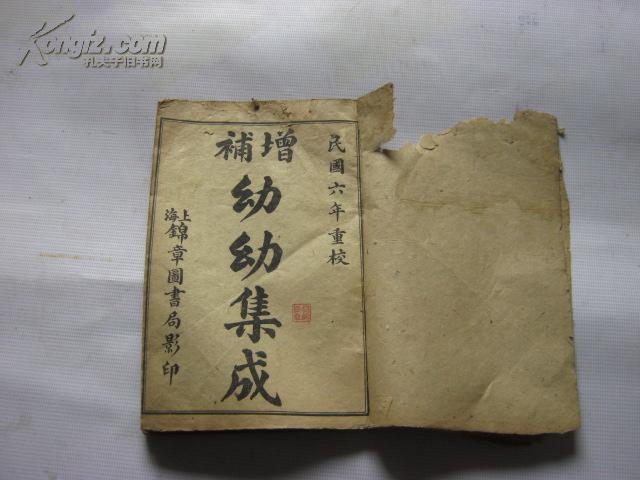 Kongfz.com
孔夫子旧书网
民國六年重校
增補
幼幼集成
上海
錦章圖書局影印